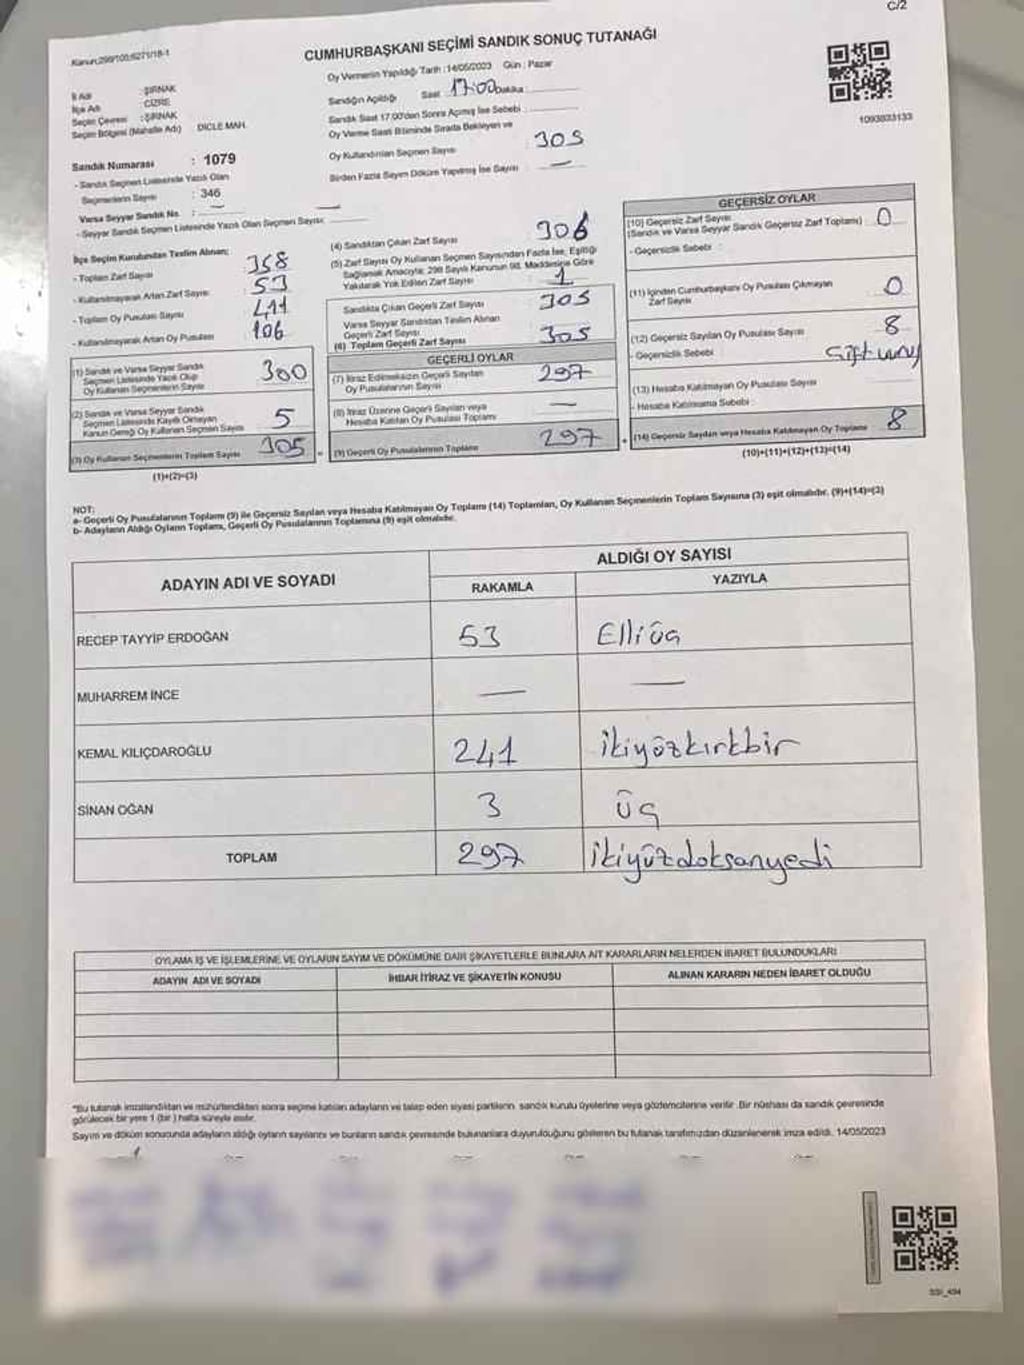 C/2
Kanun:298/103;6271/18-1
CUMHURBAŞKANI SEÇİMİ SANDIK SONUÇ TUTANAĞI
Oy Vermenin Yapıldığı Tarih :14/05/2023 Gün : Pazar
İl Adı : ŞIRNAK
İlçe Adı : CİZRE
Seçim Çevresi : ŞIRNAK
Seçim Bölgesi (Mahalle Adı) DİCLE MAH.
Sandık Numarası : 1079
- Sandık Seçmen Listesinde Yazılı Olan
Seçmenlerin Sayısı : 346
Varsa Seyyar Sandık No. : —
- Seyyar Sandık Seçmen Listesinde Yazılı Olan Seçmen Sayısı: —
Sandığın Açıldığı Saat 17:00 Dakika
Sandık Saat 17.00'den Sonra Açılmış İse Sebebi :
Oy Verme Saati Bitiminde Sırada Bekleyen ve
Oy Kullandırılan Seçmen Sayısı : 305
Birden Fazla Sayım Döküm Yapılmış İse Sayısı : —
1093933133
İlçe Seçim Kurulundan Teslim Alınan;
- Toplam Zarf Sayısı : 358
- Kullanılmayarak Artan Zarf Sayısı: 53
- Toplam Oy Pusulası Sayısı : 411
- Kullanılmayarak Artan Oy Pusulası : 106
(1) Sandık ve Varsa Seyyar Sandık
Seçmen Listesinde Yazılı Olup
Oy Kullanan Seçmenlerin Sayısı 300
(2) Sandık ve Varsa Seyyar Sandık
Seçmen Listesinde Kayıtlı Olmayan
Kanun Gereği Oy Kullanan Seçmen Sayısı 5
(3) Oy Kullanan Seçmenlerin Toplam Sayısı 305
(1)+(2)=(3)
(4) Sandıktan Çıkan Zarf Sayısı 306
(5) Zarf Sayısı Oy Kullanan Seçmen Sayısından Fazla İse, Eşitliği
Sağlamak Amacıyla; 298 Sayılı Kanunun 98. Maddesine Göre
Yakılarak Yok Edilen Zarf Sayısı : 1
Sandıkta Çıkan Geçerli Zarf Sayısı 305
Varsa Seyyar Sandıktan Teslim Alınan
Geçerli Zarf Sayısı
(6) Toplam Geçerli Zarf Sayısı 305
GEÇERLİ OYLAR
(7) İtiraz Edilmeksizin Geçerli Sayılan
Oy Pusulalarının Sayısı 297
(8) İtiraz Üzerine Geçerli Sayılan veya
Hesaba Katılan Oy Pusulası Toplamı —
(9) Geçerli Oy Pusulalarının Toplamı 297
GEÇERSİZ OYLAR
(10) Geçersiz Zarf Sayısı
(Sandık ve Varsa Seyyar Sandık Geçersiz Zarf Toplamı) : 0
- Geçersizlik Sebebi :
(11) İçinden Cumhurbaşkanı Oy Pusulası Çıkmayan
Zarf Sayısı 0
(12) Geçersiz Sayılan Oy Pusulası Sayısı 8
- Geçersizlik Sebebi :
(13) Hesaba Katılmayan Oy Pusulası Sayısı
- Hesaba Katılmama Sebebi :
(14) Geçersiz Sayılan veya Hesaba Katılmayan Oy Toplamı 8
(10)+(11)+(12)+(13)=(14)
NOT:
a- Geçerli Oy Pusulalarının Toplamı (9) ile Geçersiz Sayılan veya Hesaba Katılmayan Oy Toplamı (14) Toplamları, Oy Kullanan Seçmenlerin Toplam Sayısına (3) eşit olmalıdır. (9)+(14)=(3)
b- Adayların Aldığı Oyların Toplamı, Geçerli Oy Pusulalarının Toplamına (9) eşit olmalıdır.
ADAYIN ADI VE SOYADI ALDIĞI OY SAYISI
RAKAMLA YAZIYLA
RECEP TAYYİP ERDOĞAN 53 Elliüç
MUHARREM İNCE — —
KEMAL KILIÇDAROĞLU 241 ikiyüzkırkbir
SİNAN OĞAN 3 üç
TOPLAM 297 ikiyüzdoksanyedi
OYLAMA İŞ VE İŞLEMLERİNE VE OYLARIN SAYIM VE DÖKÜMÜNE DAİR ŞİKAYETLERLE BUNLARA AİT KARARLARIN NELERDEN İBARET BULUNDUKLARI
ADAYIN ADI VE SOYADI İHBAR İTİRAZ VE ŞİKAYETİN KONUSU ALINAN KARARIN NEDEN İBARET OLDUĞU
*Bu tutanak imzalandıktan ve mühürlendikten sonra seçime katılan adayların ve talep eden siyasi partilerin sandık kurulu üyelerine veya gözlemcilerine verilir. Bir nüshası da sandık çevresinde
görülecek bir yere 1 (bir ) hafta süreyle asılır.
Sayım ve döküm sonucunda adayların aldığı oyların sayılarını ve bunların sandık çevresinde bulunanlara duyurulduğunu gösteren bu tutanak tarafımızdan düzenlenerek imza edildi. 14/05/2023